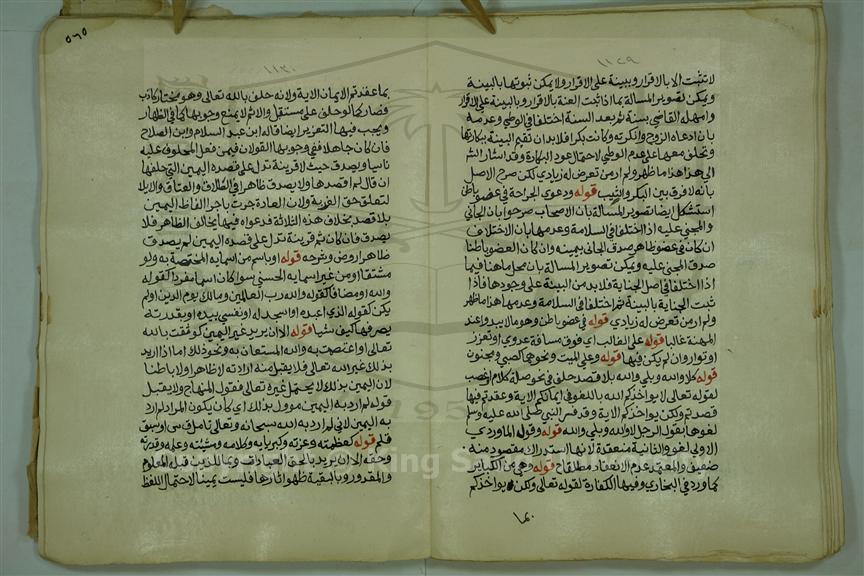 ١١٢٩
لا تثبت الا بالاقرار وببينة على الاقرار ولا يمكن ثبوتها بالبينة
ويمكن تصوير المسالة بما اذا ثبت العنة بالاقرار وبالبينة على الاقرار
وامهله القاضي بسنة ثم بعد السنة اختلفا في الوطي وعدمه
بان ادعاه الزوج وانكرته وكانت بكرا فلا بد ان تقيم البينة ببكارتها
وتحلف معها على عدم الوطي لاحتمال عود البكارة وقد اشار الشر
الى هذا هذا ما ظهر ولم ار من تعرض له زيادي لكن صرح الاصل
بانه لا فرق بين البكر والثيب قوله ودعوى الجراحة في عضو باطن
استشكل ايضا تصوير المسالة بان الاصحاب صرحوا بان الجاني
والمجني عليه اذا اختلفا في السلامة وعدمها بان الاختلاف
ان كان في عضو ظاهر صدق الجاني بيمينه وان كان العضو باطنا
صدق المجني عليه ويمكن تصوير المسالة بان محل ما هنا فيما
اذا اختلفا في اصل الجناية فلا بد من البينة على وجودها فاذا
ثبت الجناية بالبينة ثم اختلفا في السلامة وعدمها هذا ما ظهر
ولم ار من تعرض له زيادي قوله في عضو باطن وهو ما لا يبدو عند
المهنة غالبا قوله على الغائب اي فوق مسافة عدوى او تعزز
او توار وان لم يكن فيها قوله وعلى الميت ونحوه كالصبي ومجنون
قوله كلا والله وبلى والله بلا قصد حلف في نحو صلة كلام او غضب
لقوله تعالى لا يواخذكم الله باللغو في ايمانكم الاية وعقدتم فيها
قصدتم ولكن يواخذكم الاية وقد فسر النبي صلى الله عليه وسم
لغوها بقول الرجل لا والله وبلى والله قوله وقول الماوردي
الاولى لغو والثانية منعقدة لانها استدراك مقصود منه
ضعيف والمعتمد عدم الانعقاد مطلقا ح قوله وهي من الكباير
كما ورد في البخاري وفيها الكفارة لقوله تعالى ولكن يواخذكم
بما
٥٦٥
١١٣٠
بما عقدتم الايمان الاية ولانه حلف بالله تعالى وهو مختار كاذب
فصار كما لو حلف على مستقبل والاثم لا يمنع وجوبها كما في الظهار
ويجب فيها التعزير ايضا قاله ابن عبد السلام وابن الصلاح
فان كان جاهلا ففي وجوبها القولان فيمن فعل المحلوف عليه
ناسيا ويصدق حيث لا قرينة تدل على قصده اليمين التي حلفها
ان قال لم اقصدها ولا يصدق ظاهرا في الطلاق والعتاق والايلا
لتعلق حق الغير به ولان العادة جرت باجرا الفاظ اليمين
بلا قصد بخلاف هذه الثلاثة فدعواه فيها يخالف الظاهر فلا
يصدق فان كان ثم قرينة تدل على قصده اليمين لم يصدق
ظاهرا روض وشرحه قوله او باسم من اسمايه المختصة به ولو
مشتقا او من غير اسمايه الحسنى سوا كان اسما مفردا كقوله
والله او مضافا كقوله والله رب العالمين ومالك يوم الدين او لم
يكن كقوله الذي اعبده او اسجد له او نفسي بيده او بقدرته
يصرفها كيف شيا قوله الا ان يريد غير اليمين كوثقت بالله
تعالى او اعتصمت به والله المستعان به ونحو ذلك اما اذا اريد
بذلك غير الله تعالى فلا يقبل منه ارادته لا ظاهرا ولا باطنا
لان اليمين بذلك لا يحتمل غيره تعالى فقول المنهاج ولا يقبل
قوله لم ارد به اليمين موول بذلك اي كان يكون المراد لم ارد
به اليمين لاني لم ارد به الله سبحانه وتعالى تامل ق س او سبق
قلم قوله كعظمته وعزته وكبريايه وكلامه ومشيئته وعلمه وقدرته
وحقه الا ان يريد بالحق العبادات وبما للذين قبله المعلوم
والمقدور وبالبقية ظهور اثارها فليست يمينا لاحتمال اللفظ